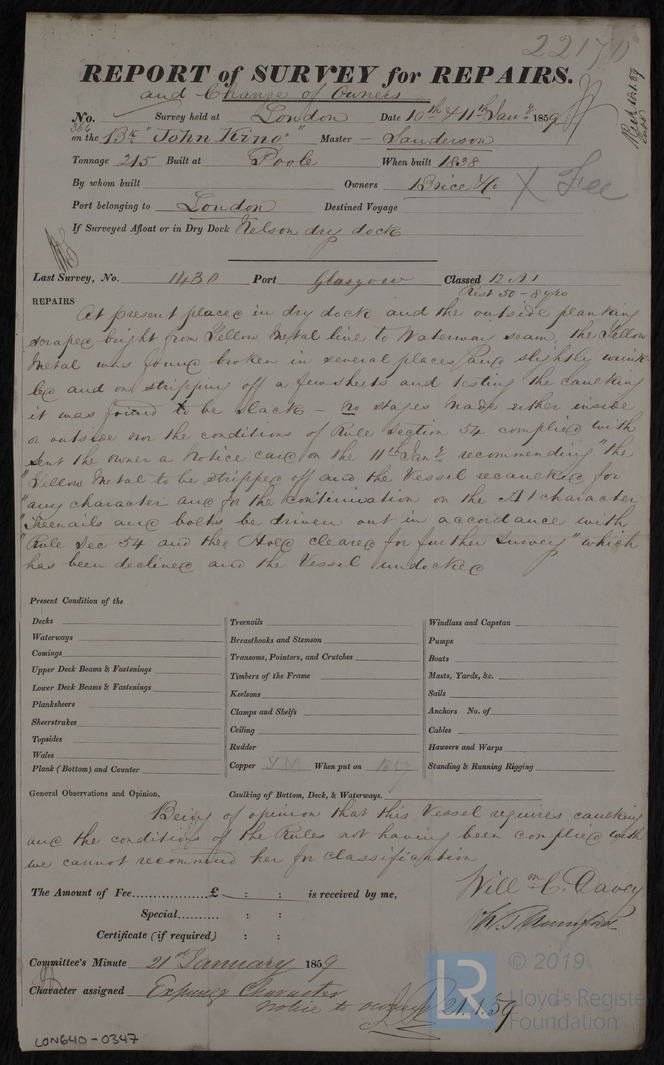 22170
REPORT of SURVEY for REPAIRS.
and Change of Owners
No. Survey held at London Date 10th & 11th Jany 1859
364
on the Bk "John King" Master Sanderson
Tonnage 215 Built at Poole When built 1838
By whom built Owners Brice & Co X Fee
Port belonging to London Destined Voyage
If Surveyed Afloat or in Dry Dock Nelson dry dock
Last Survey, No. 1430 Port Glasgow Classed 12 A1
Rest 50 - 8 yrs
REPAIRS
At present placed in dry dock and the outside planking
scraped bright from Yellow Metal line to Waterway seam, the Yellow
Metal was found broken in several places and slightly wrink-
led and on stripping off a few sheets and testing the caulking
it was found to be slack - no stages made either inside
or outside nor the conditions of Rule Section 54 complied with
Sent the owner a Notice card on the 11th Jany recommending "the
"Yellow Metal to be stripped off and the Vessel recaulked for
"any character and for the continuation on the A1 character
"Treenails and bolts be driven out in accordance with
"Rule Sec 54 and the Hold cleared for further Survey" which
has been declined and the Vessel undocked
Present Condition of the
Decks
Waterways
Comings
Upper Deck Beams & Fastenings
Lower Deck Beams & Fastenings
Planksheers
Sheerstrakes
Topsides
Wales
Plank (Bottom) and Counter
Treenails
Breasthooks and Stemson
Transoms, Pointers, and Crutches
Timbers of the Frame
Keelsons
Clamps and Shelfs
Ceiling
Rudder
Copper YM When put on 1857
Windlass and Capstan
Pumps
Boats
Masts, Yards, &c.
Sails
Anchors No. of
Cables
Hawsers and Warps
Standing & Running Rigging
General Observations and Opinion, Caulking of Bottom, Deck, & Waterways.
Being of opinion that this Vessel requires caulking
and the conditions of the Rules not having been complied with
we cannot recommend her for classification
Willm C. Davey
The Amount of Fee................£ : : is received by me,
W. T. Mumford
Special......... : :
Certificate (if required) : :
Committee's Minute 21st January 1859
Character assigned Expunge Character
notice to owners 21.1.59
© 2019
LR Lloyd's Register
Foundation
LON640-0347